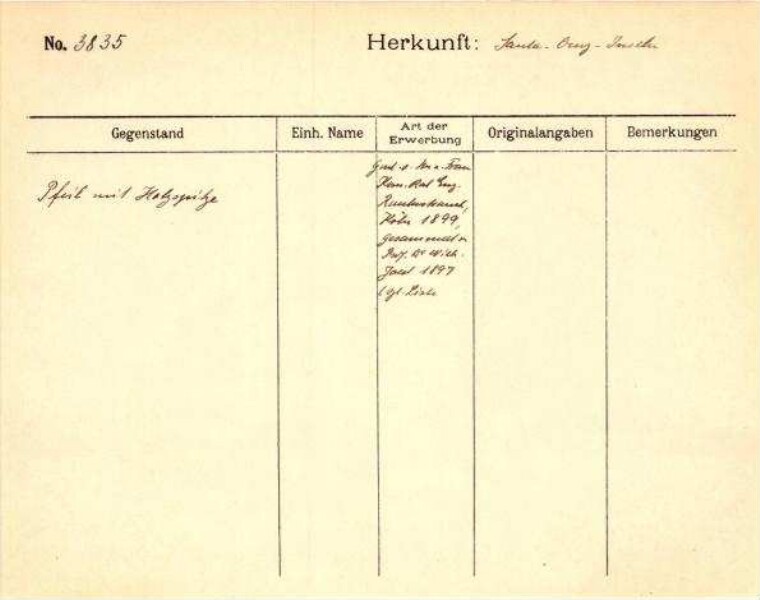 No. 3835
Herkunft: Santa-Cruz-Inseln
Gegenstand
Einh. Name
Art der Erwerbung
Originalangaben
Bemerkungen
Pfeil mit Holzspitze
Gesch. v. Frau
Kom. Rat Eug.
Rautenstrauch,
Köln 1899,
gesammelt v.
Prof. Dr Wilh.
Joest 1897
vgl. Liste